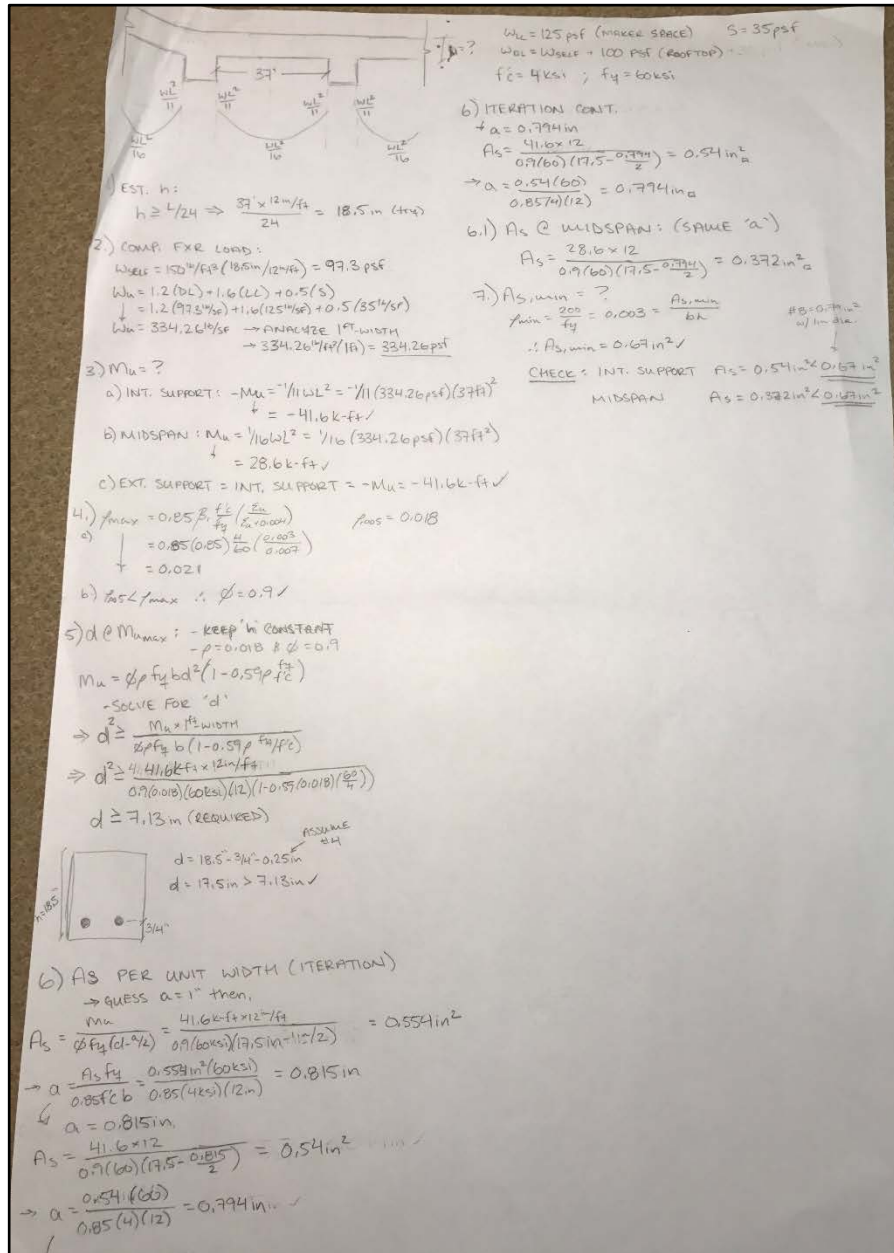 WLL = 125 psf (MAKER SPACE) S = 35psf
WDL = WSELF + 100 PSF (ROOFTOP)
f'c = 4ksi ; fy = 60ksi
h=?
37'
WL²/11 WL²/11 WL²/11 WL²/11
WL²/16 WL²/16 WL²/16
1) EST. h:
h ≥ L/24 ⇒ 37' x 12in/ft / 24 = 18.5 in (try)
2.) COMP. FXR LOAD:
WSELF = 150 lb/ft³ (18.5in/12in/ft) = 97.3 psf
Wu = 1.2(DL) + 1.6(LL) + 0.5(S)
= 1.2(97.3 lb/sf) + 1.6(125 lb/sf) + 0.5(35 lb/sf)
Wu = 334.26 lb/sf → ANALYZE 1FT-WIDTH
→ 334.26 lb/ft² (1ft) = 334.26 psf
3.) Mu = ?
a) INT. SUPPORT: -Mu = -1/11 WL² = -1/11 (334.26 psf)(37ft)²
= -41.6 k-ft ✓
b) MIDSPAN: Mu = 1/16 WL² = 1/16 (334.26 psf)(37ft²)
= 28.6 k-ft ✓
c) EXT. SUPPORT = INT. SUPPORT = -Mu = -41.6k-ft ✓
4.) ρmax = 0.85 β1 f'c/fy (Eu / Eu+0.004) ρ.005 = 0.018
a)
= 0.85(0.85) 4/60 (0.003/0.007)
= 0.021
b) ρ.005 < ρmax ∴ ∅ = 0.9 ✓
5) d @ Mumax: - KEEP 'h' CONSTANT
- ρ = 0.018 & ∅ = 0.9
Mu = ∅ρ fy bd² (1 - 0.59ρ fy/f'c)
- SOLVE FOR 'd'
⇒ d² ≥ Mu x 1ft WIDTH / ∅ρfy b (1 - 0.59ρ fy/f'c)
⇒ d² ≥ 41.6kft x 12in/ft / 0.9(0.018)(60ksi)(12)(1-0.59(0.018)(60/4))
d ≥ 7.13 in (REQUIRED)
ASSUME #4
d = 18.5" - 3/4" - 0.25in
d = 17.5in > 7.13in ✓
h=18.5"
3/4"
6) AS PER UNIT WIDTH (ITERATION)
→ GUESS a = 1" then,
As = Mu / ∅fy(d-a/2) = 41.6k-ft x 12in/ft / 0.9(60ksi)(17.5in - 1in/2) = 0.554in²
→ a = As fy / 0.85f'c b = 0.554in²(60ksi) / 0.85(4ksi)(12in) = 0.815in
a = 0.815in,
As = 41.6 x 12 / 0.9(60)(17.5 - 0.815/2) = 0.54in²
→ a = 0.541(60) / 0.85(4)(12) = 0.794in
6) ITERATION CONT.
a = 0.794in
As = 41.6 x 12 / 0.9(60)(17.5 - 0.794/2) = 0.54in²
→ a = 0.54(60) / 0.85(4)(12) = 0.794in
6.1) As @ MIDSPAN: (SAME 'a')
As = 28.6 x 12 / 0.9(60)(17.5 - 0.794/2) = 0.372in²
7.) As,min = ?
ρmin = 200/fy = 0.003 = As,min/bh
#8=0.79in²
w/ 1in dia.
∴ As,min = 0.67in² ✓
CHECK: INT. SUPPORT As = 0.54in² < 0.67in²
MIDSPAN As = 0.372in² < 0.67in²